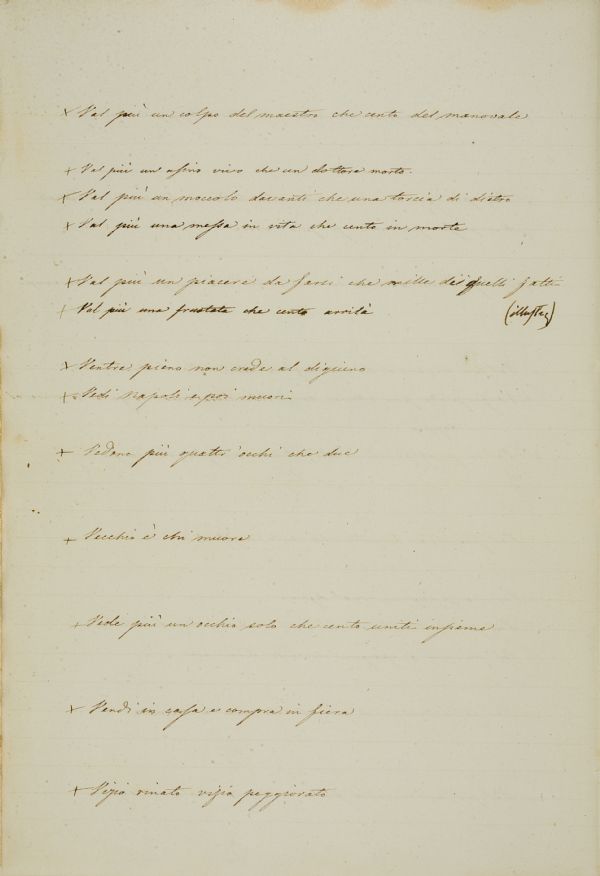 × Val più un colpo del maestro che cento del manovale
+ Val più un asino vivo che un dottore morto.
× Val più un moccolo davanti che una torcia di dietro
× Val più una messa in vita che cento in morte
+ Val più un piacere da farsi che mille di quelli fatti
+ Val più una frustata che cento arrilà (illustr.)
× Ventre pieno non crede al digiuno
+ Vedi Napoli e poi muori
+ Vedono più quattr'occhi che due
+ Vecchio è chi muore
+ Vede più un occhio solo che cento uniti insieme
× Vendi in casa e compra in fiera
+ Vizio rinato vizio peggiorato